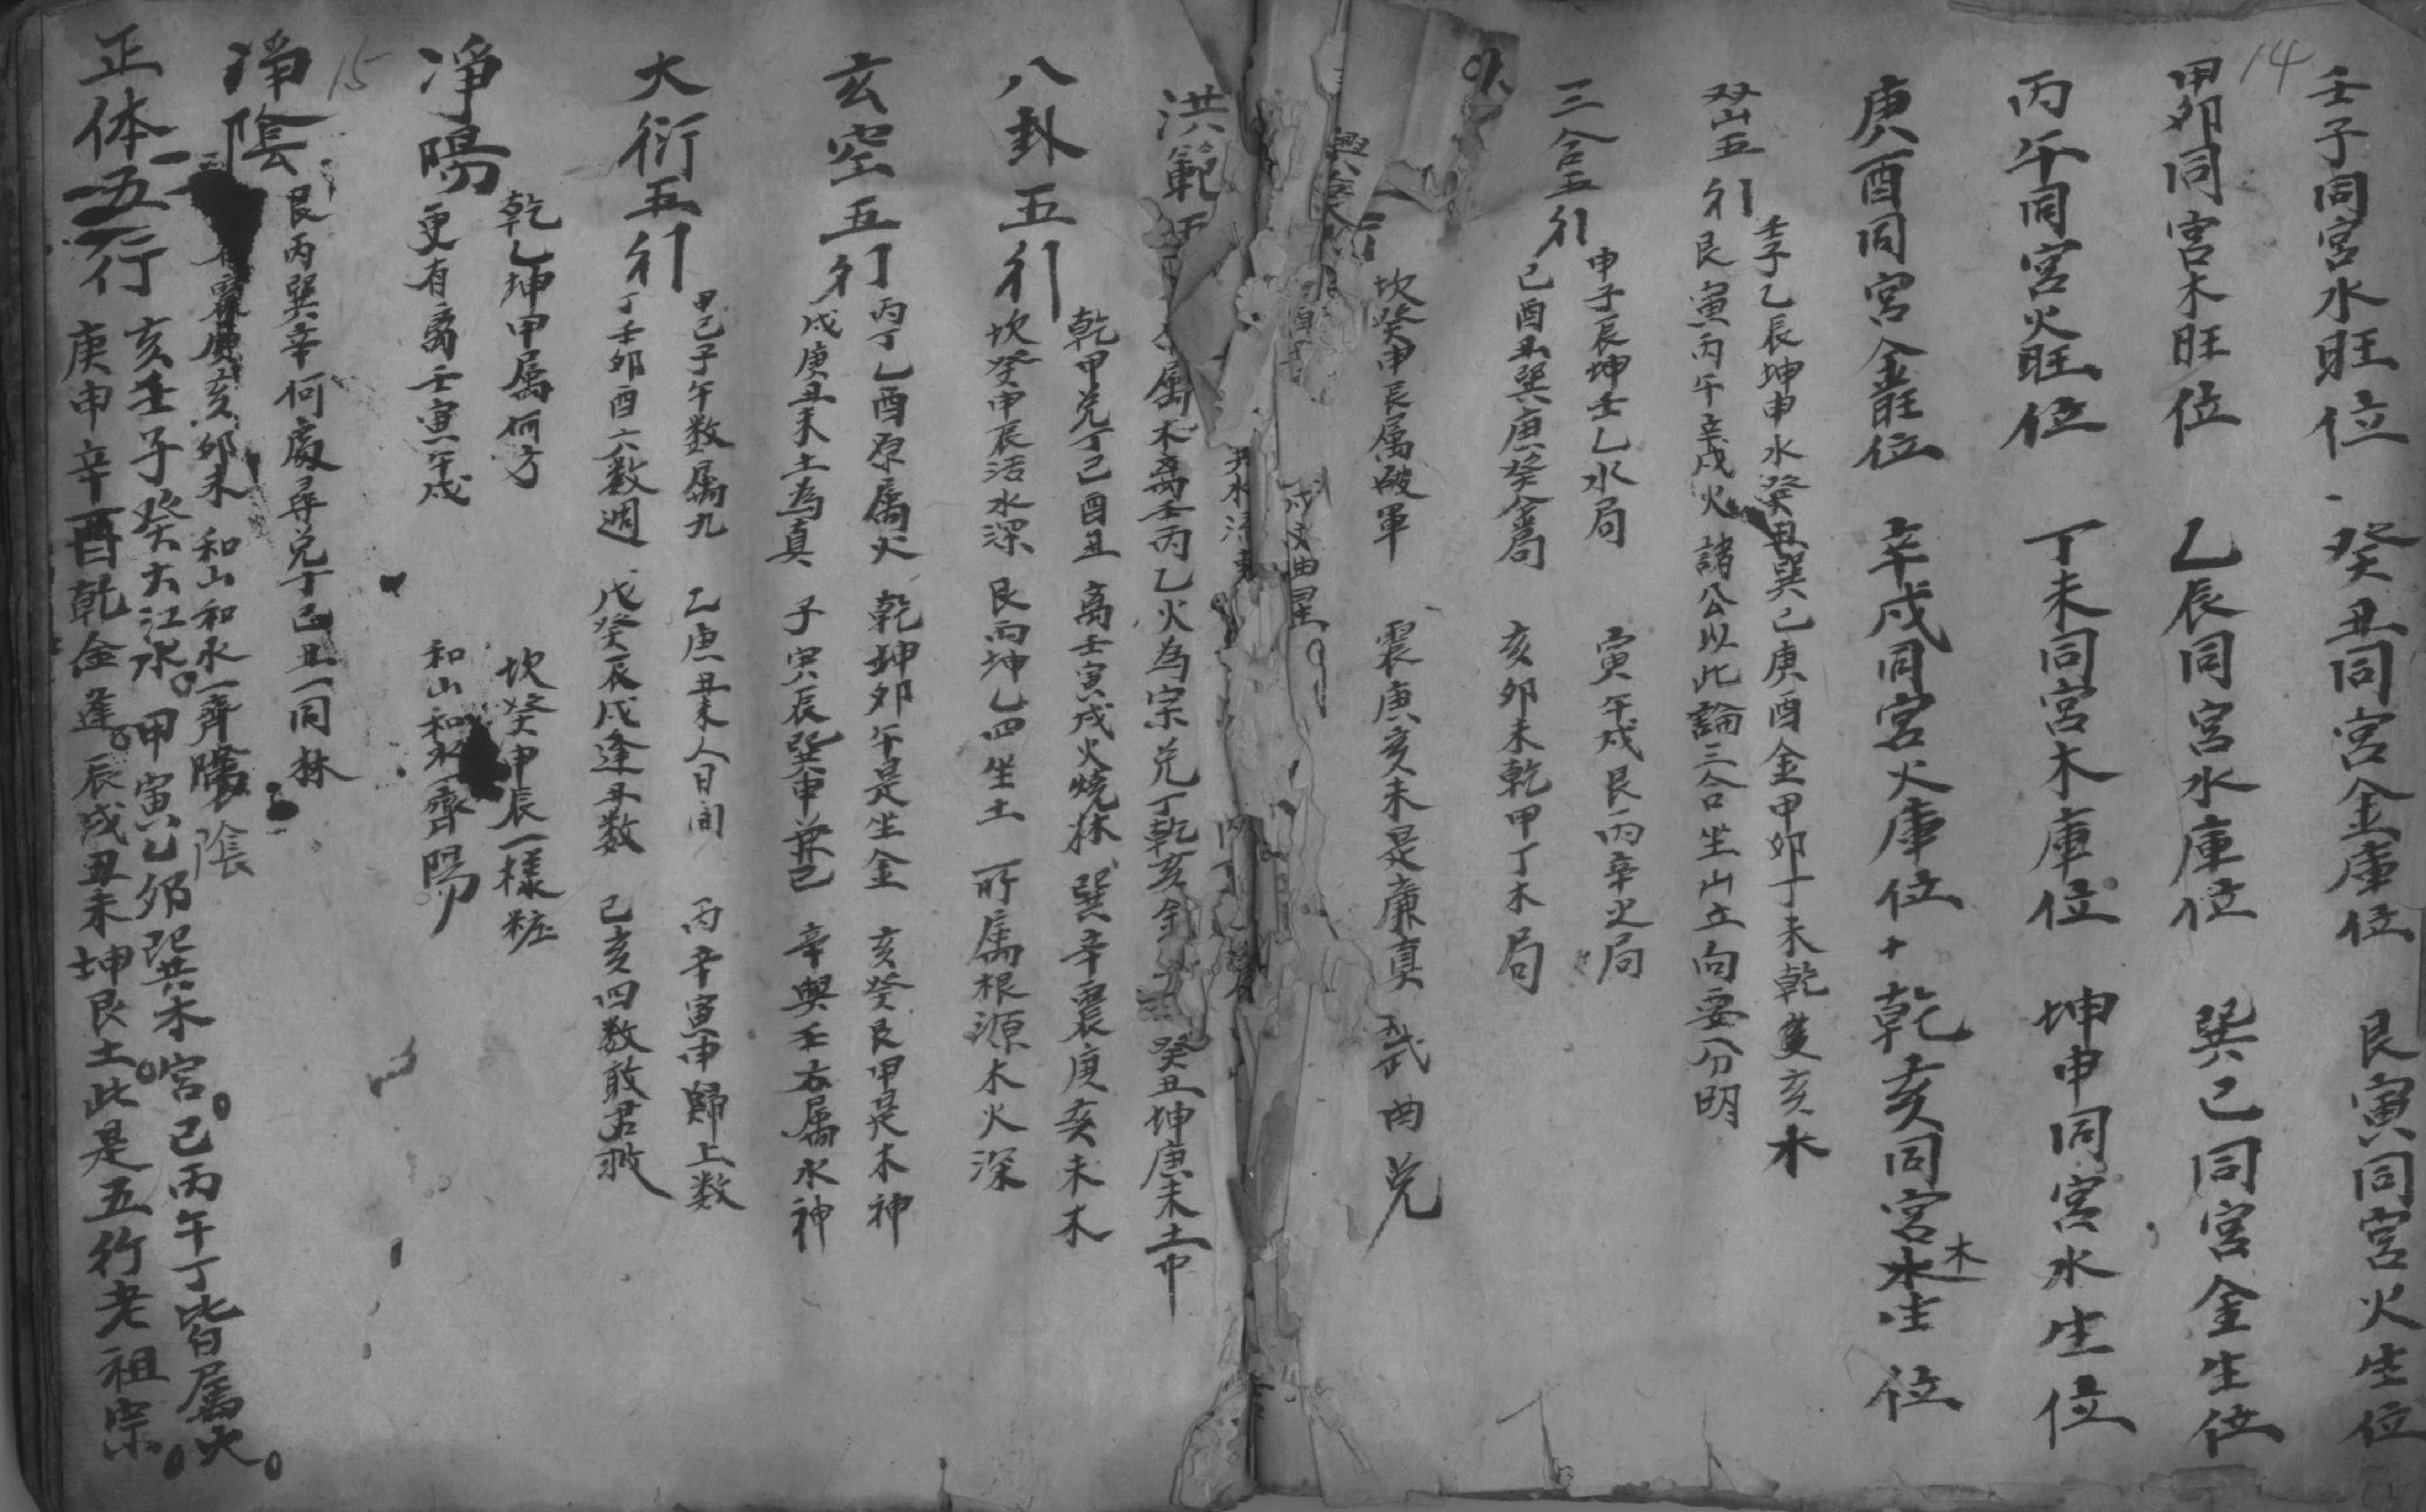 14
壬子同宮水旺位 癸丑同宮金庫位 艮寅同宮火生位
甲卯同宮木旺位 乙辰同宮水庫位 巽己同宮金生位
丙午同宮火旺位 丁未同宮木庫位 坤申同宮水生位
庚酉同宮金旺位 辛戌同宮火庫位 乾亥同宮木生位
双山五行
壬子乙辰坤申水癸丑巽己庚酉金甲卯丁未乾亥木
艮寅丙午辛戌火 諸公以此論三合坐山立向要分明
三合五行
申子辰坤壬乙水局 寅午戌艮丙辛火局
己酉丑巽庚癸金局 亥卯未乾甲丁木局
坎癸申辰属破軍 震庚亥未是廉貞 武曲兌
戌文曲星
洪範五
属木离壬丙乙火為宗兌丁乾亥金 癸丑坤庚未土
八卦五行
乾甲兌丁己酉丑 离壬寅戌火燒林 巽辛震庚亥未木
坎癸申辰活水深 艮丙坤乙四坐土 所属根源木火深
玄空五行
丙丁乙酉原属火 乾坤卯午是坐金 亥癸艮甲是木神
戌庚丑未土為真 子寅辰巽申兼己 辛與壬方属水神
大衍五行
甲己子午数属九 乙庚丑未人日间 丙辛寅申歸上数
丁壬卯酉六数週 戊癸辰戌逢五数 己亥四数敢君救
净陽
乾乙坤甲属何方 坎癸申辰一樣粧
更有离壬寅午戌 和山和水一齊陽
15
净陰
艮丙巽辛何處尋兌丁己丑一同林
庚亥卯未 和山和水一齊陰
正体五行
亥壬子癸大江水 甲寅乙卯巽木宮 己丙午丁皆属火
庚申辛酉乾金逢 辰戌丑未坤艮土此是五行老祖宗